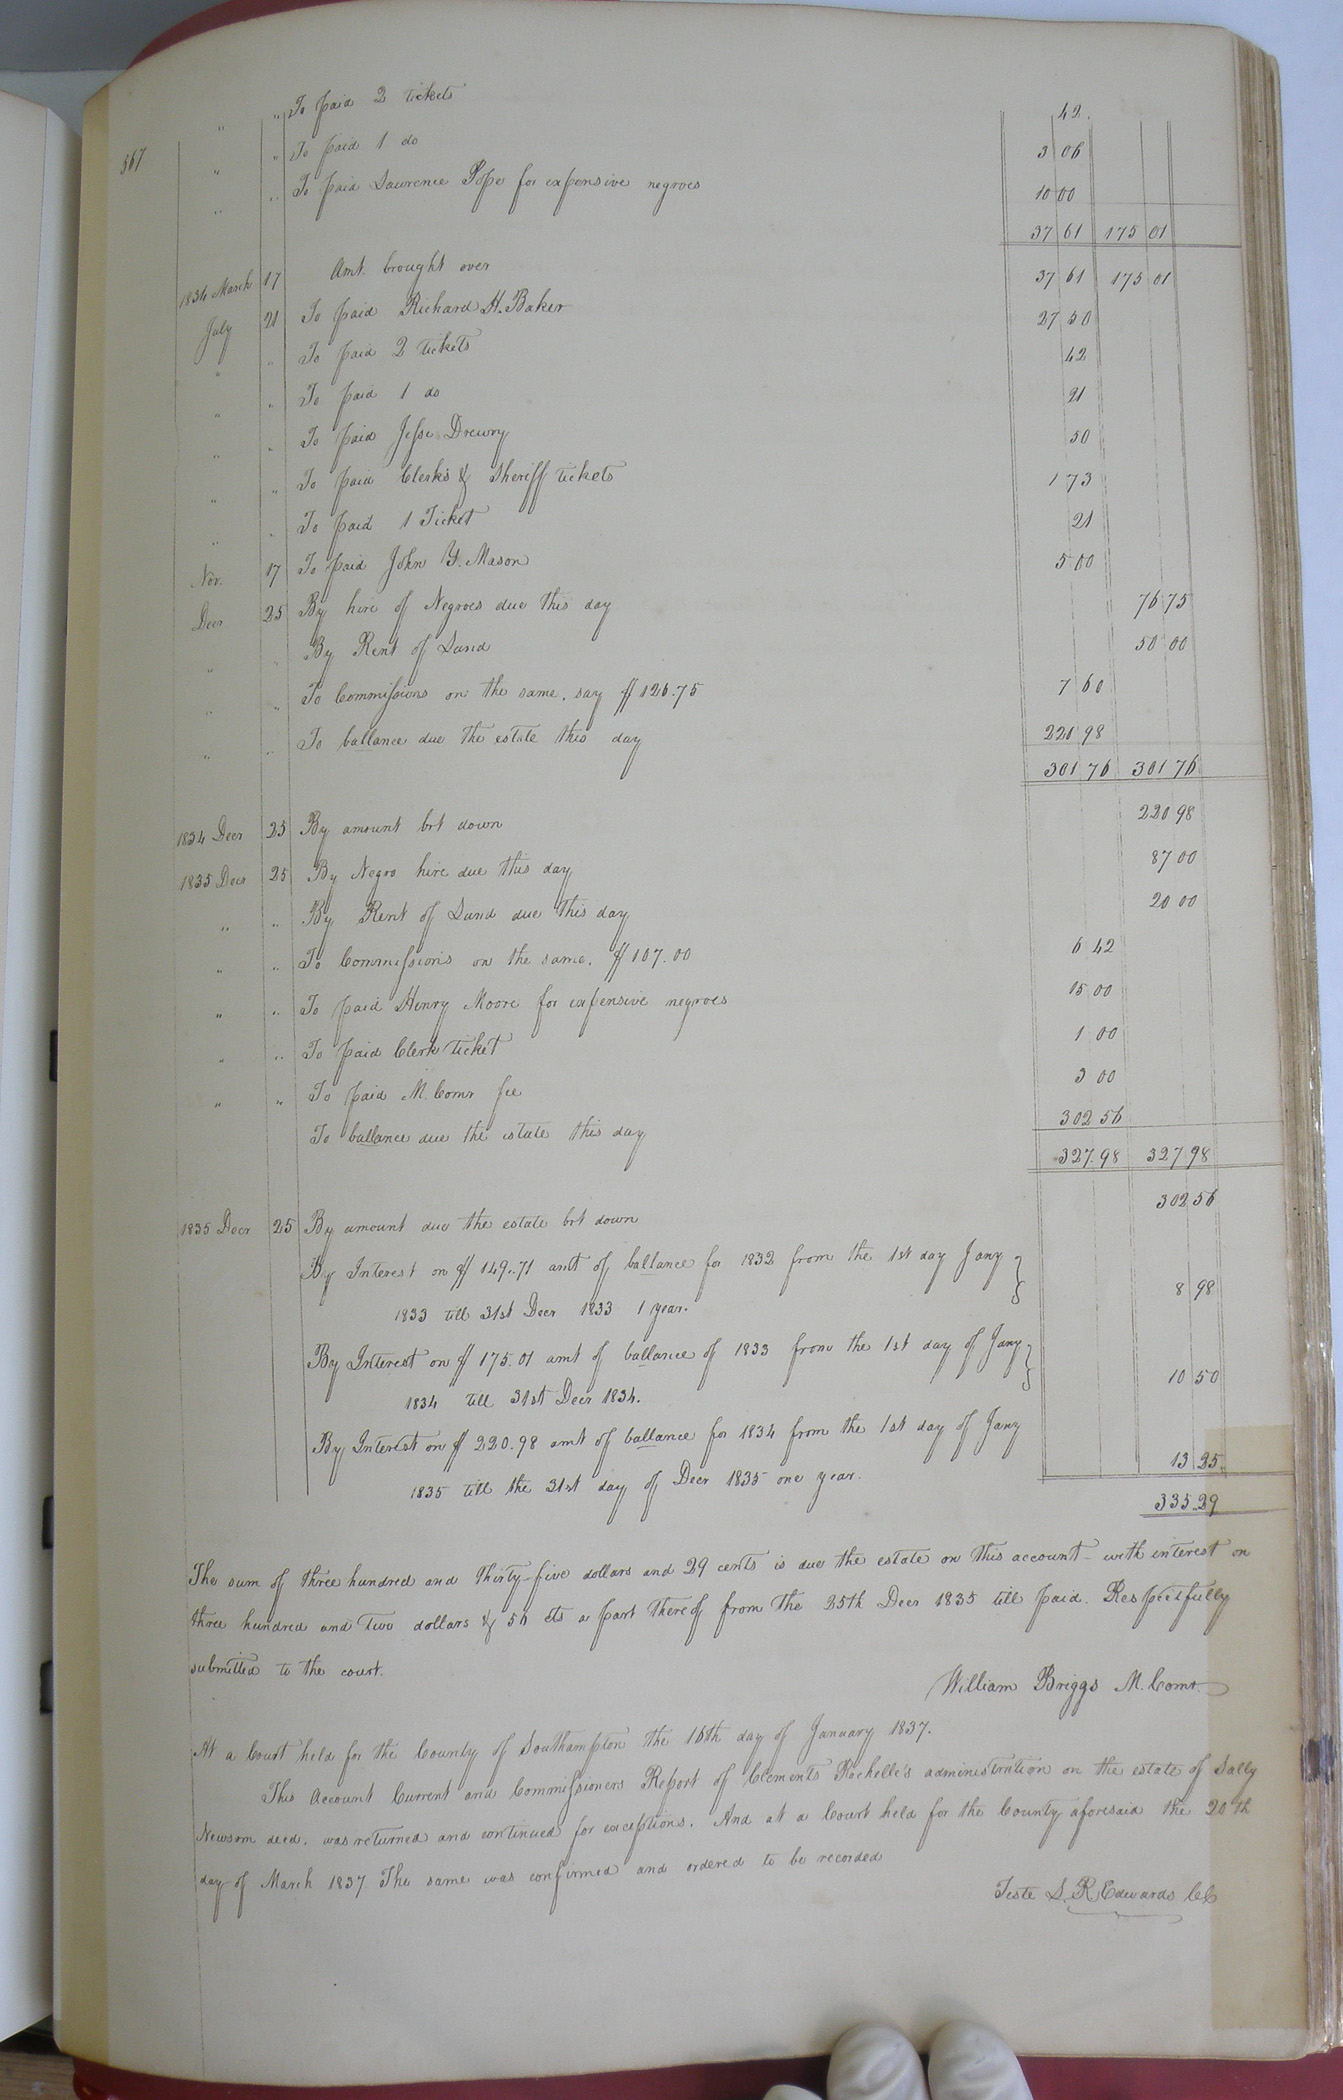 " " To paid 2 tickets 42.
567 " " To paid 1 do 3 06
" " To paid Lawrence Pope for expensive negroes 10 00
37 61 175 01
1834 March 17 Amt. brought over 37 61 175 01
July 21 To paid Richard H. Baker 27 50
" " To paid 2 tickets 42
" " To paid 1 do 21
" " To paid Jesse Drewry 50
" " To paid Clerks & Sheriff tickets 1 73
" " To paid 1 Ticket 21
Nov. 17 To paid John Y. Mason 5 00
Decr 25 By hire of Negroes due this day 76 75
" " By Rent of Land 50 00
" " To Commissions on the same. say $126.75 7 60
" " To ballance due the estate this day 220 98
301 76 301 76
1834 Decr 25 By amount brt down 220 98
1835 Decr 25 By Negro hire due this day 87 00
" " By Rent of Land due this day 20 00
" " To Commissions on the same. $107.00 6 42
" " To paid Henry Moore for expensive negroes 15 00
" " To paid Clerk ticket 1 00
" " To paid M. Comr fee 3 00
To ballance due the estate this day 302 56
327.98 327 98
1835 Decr 25 By amount due the estate brt down 302 56
By Interest on $149..71 amt of ballance for 1832 from the 1st day Jany
1833 till 31st Decr 1833 1 year. 8 98
By Interest on $175.01 amt of ballance of 1833 from the 1st day of Jany
1834 till 31st Decr 1834. 10 50
By Interest on $220.98 amt of ballance for 1834 from the 1st day of Jany
1835 till the 31st day of Decr 1835 one year. 13 25.
335..29
The sum of three hundred and Thirty-five dollars and 29 cents is due the estate on this account - with interest on
three hundred and two dollars & 56 cts a part thereof from the 25th Decr 1835 till paid. Respectfully
submitted to the court.
William Briggs M. Comr.
At a Court held for the County of Southampton the 16th day of January 1837.
This Account Current and Commissioners Report of Clements Rochelle's administration on the estate of Sally
Newsom decd. was returned and continued for exceptions. And at a Court held for the County aforesaid the 20th
day of March 1837 The same was confirmed and ordered to be recorded
Teste L. R Edwards CC